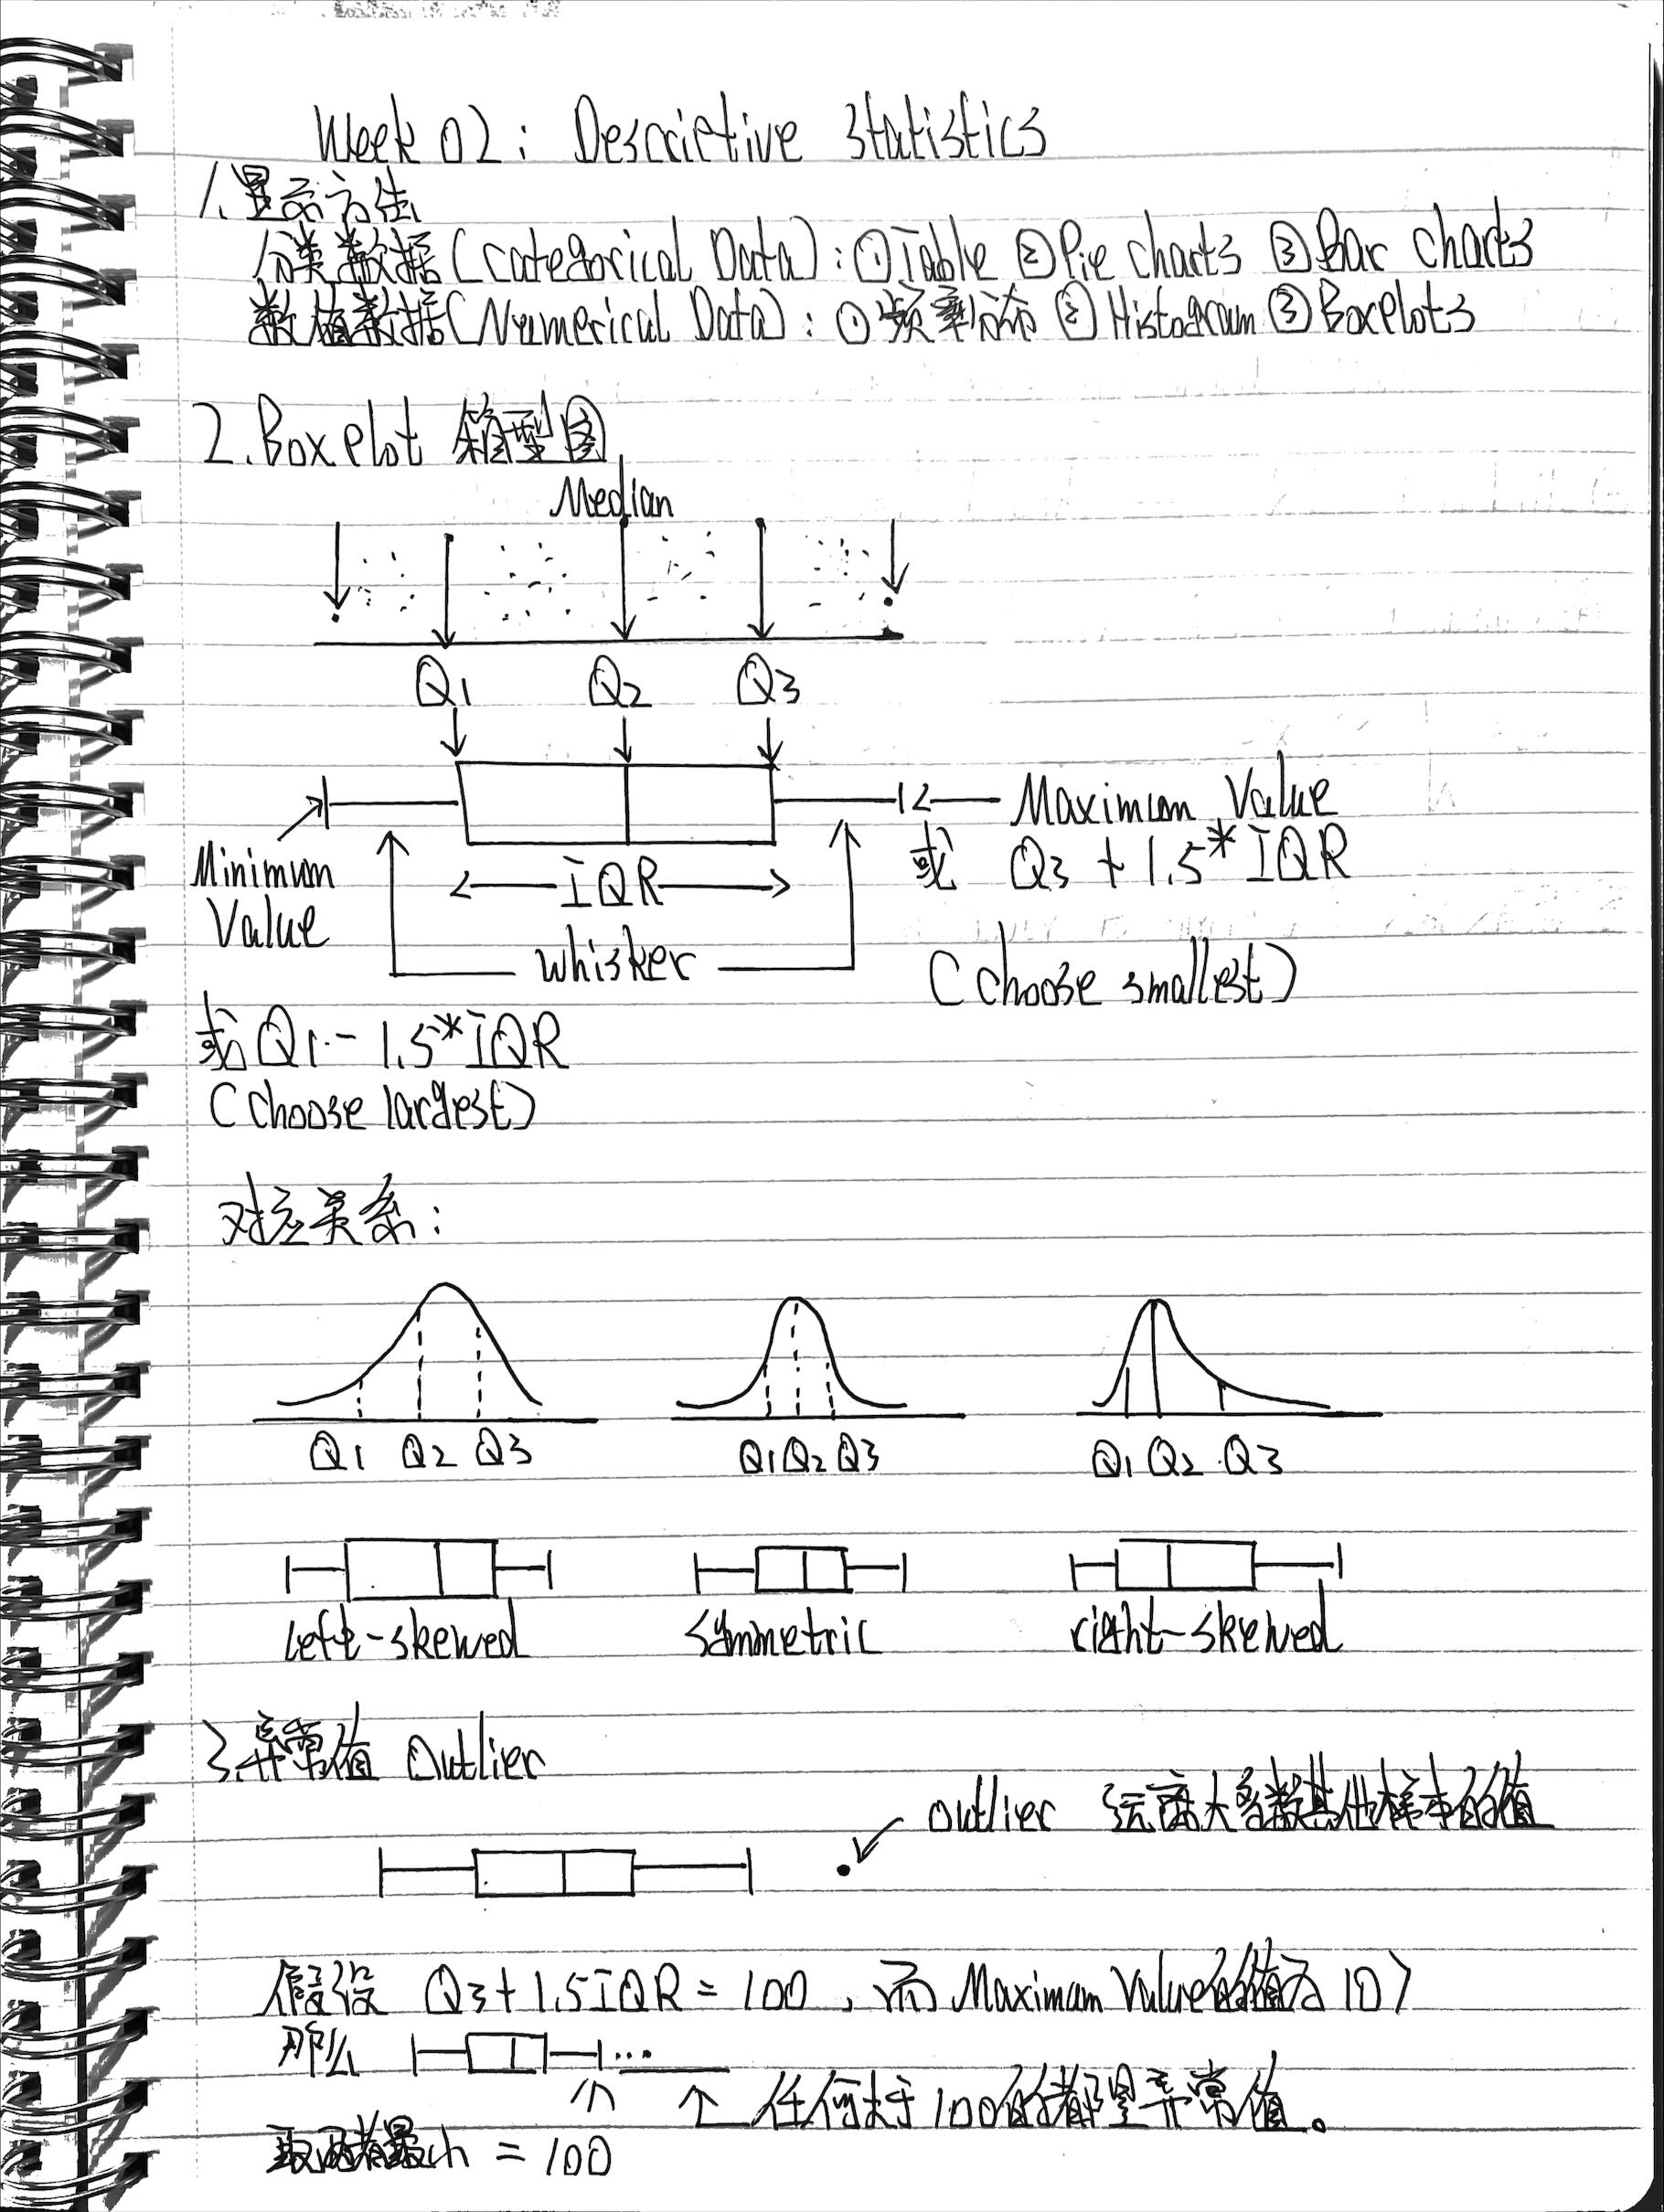 Week 02: Descriptive Statistics
1.显示方法
分类数据(Categorical Data):①Table ②Pie charts ③Bar charts
数值数据(Numerical Data):①频率分布 ②Histogram ③Boxplots
2.Boxplot 箱型图
Median
Q1 Q2 Q3
Minimum Value
Maximum Value
或 Q3 + 1.5*IQR
(choose smallest)
IQR
whisker
或Q1 - 1.5*IQR
(choose largest)
对应关系:
Q1 Q2 Q3 Q1 Q2 Q3 Q1 Q2 Q3
left-skewed symmetric right-skewed
3.异常值 Outlier
outlier 远离大多数其他样本的值
假设 Q3+1.5IQR = 100 , 而 Maximum Value的值为 107
那么
任何大于100的都是异常值。
取两者最小 = 100